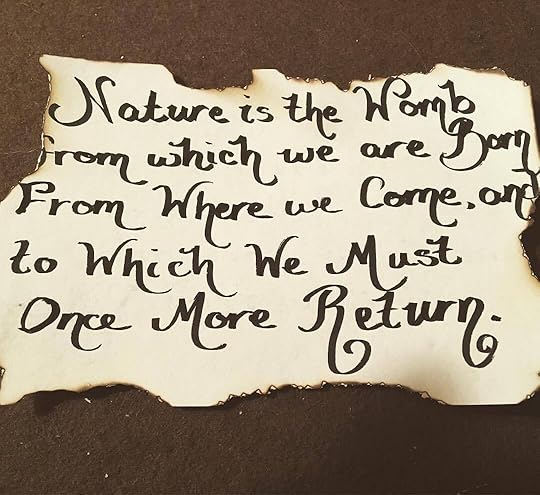 Nature is the Womb
from which we are Born
From Where we Come, and
to Which We Must
Once More Return.